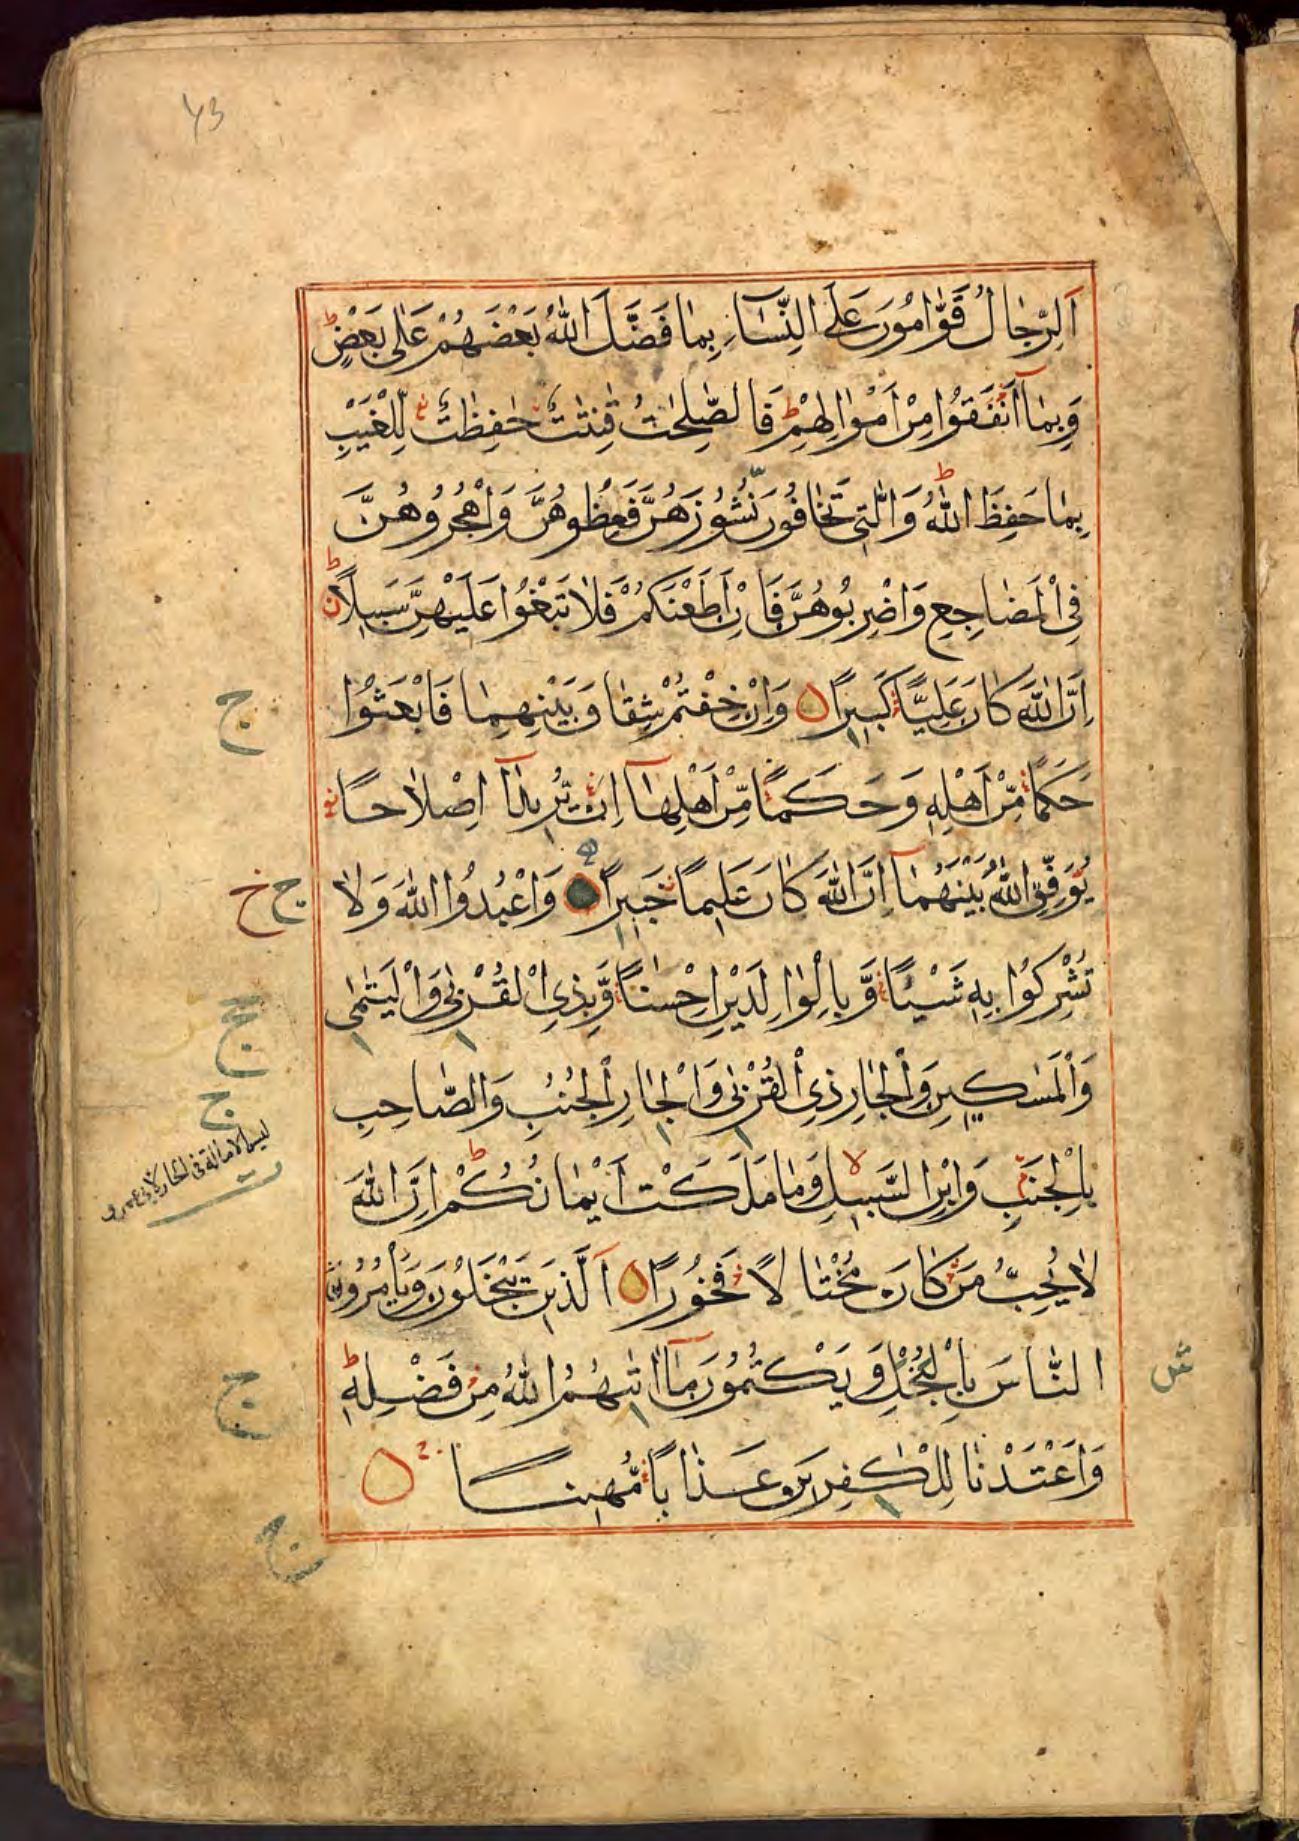 43
اَلرِّجَالُ قَوَّامُونَ عَلَى النِّسَآءِ بِمَا فَضَّلَ اللّٰهُ بَعْضَهُمْ عَلٰى بَعْضٍ ط
وَبِمَآ اَنْفَقُوْا مِنْ اَمْوَالِهِمْ ط فَالصّٰلِحٰتُ قٰنِتٰتٌ حٰفِظٰتٌ لِلْغَيْبِ
بِمَا حَفِظَ اللّٰهُ ط وَالّٰتِي تَخَافُونَ نُشُوزَهُنَّ فَعِظُوهُنَّ وَاهْجُرُوهُنَّ
فِي الْمَضَاجِعِ وَاضْرِبُوهُنَّ فَاِنْ اَطَعْنَكُمْ فَلَا تَبْغُوْا عَلَيْهِنَّ سَبِيلًا ط
اِنَّ اللّٰهَ كَانَ عَلِيًّا كَبِيرًا وَاِنْ خِفْتُمْ شِقَاقَ بَيْنِهِمَا فَابْعَثُوْا
ج
حَكَمًا مِّنْ اَهْلِهٖ وَحَكَمًا مِّنْ اَهْلِهَآ اِنْ يُّرِيدَآ اِصْلَاحًا
يُوَفِّقِ اللّٰهُ بَيْنَهُمَآ اِنَّ اللّٰهَ كَانَ عَلِيمًا خَبِيرًا وَاعْبُدُوا اللّٰهَ وَلَا
ج خ
تُشْرِكُوْا بِهٖ شَيْـًٔا وَّبِالْوَالِدَيْنِ اِحْسٰنًا وَّبِذِي الْقُرْبٰى وَالْيَتٰمٰى
ج
وَالْمَسٰكِينِ وَالْجَارِ ذِي الْقُرْبٰى وَالْجَارِ الْجُنُبِ وَالصَّاحِبِ
ج
بِالْجَنْبِ وَابْنِ السَّبِيلِ لا وَمَا مَلَكَتْ اَيْمَانُكُمْ ط اِنَّ اللّٰهَ
لَا يُحِبُّ مَنْ كَانَ مُخْتَالًا فَخُورًا اَلَّذِينَ يَبْخَلُونَ وَيَأْمُرُونَ
النَّاسَ بِالْبُخْلِ وَيَكْتُمُونَ مَآ اٰتٰىهُمُ اللّٰهُ مِنْ فَضْلِهٖ ط
ج
وَاَعْتَدْنَا لِلْكٰفِرِينَ عَذَابًا مُّهِينًا
ج